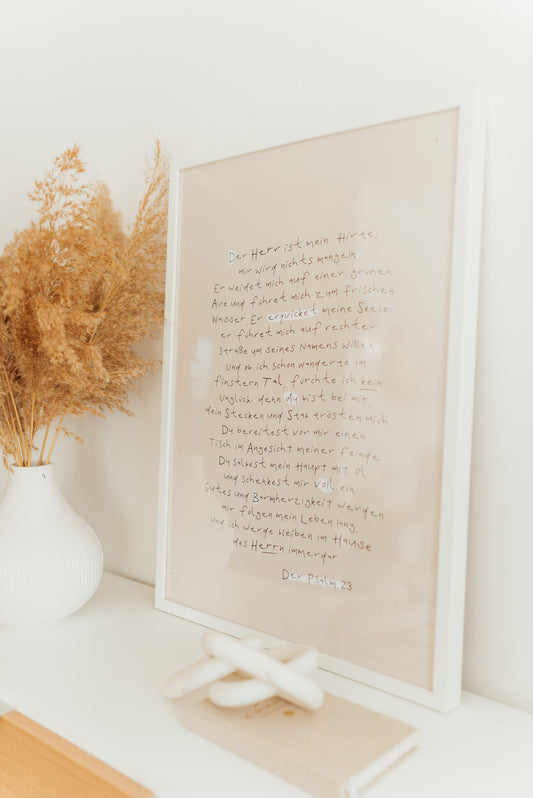 Der Herr ist mein Hirte;
mir wird nichts mangeln
Er weidet mich auf einer grünen
Aue und führet mich zum frischen
Wasser. Er erquicket meine Seele;
er führet mich auf rechter
Straße um seines Namens willen.
Und ob ich schon wanderte im
finstern Tal, fürchte ich kein
Unglück; denn du bist bei mir,
dein Stecken und Stab trösten mich.
Du bereitest vor mir einen
Tisch im Angesicht meiner Feinde.
Du salbest mein Haupt mit Öl
und schenkest mir voll ein
Gutes und Barmherzigkeit werden
mir folgen mein Leben lang,
und ich werde bleiben im Hause
des Herrn immerdar.
Der Psalm 23